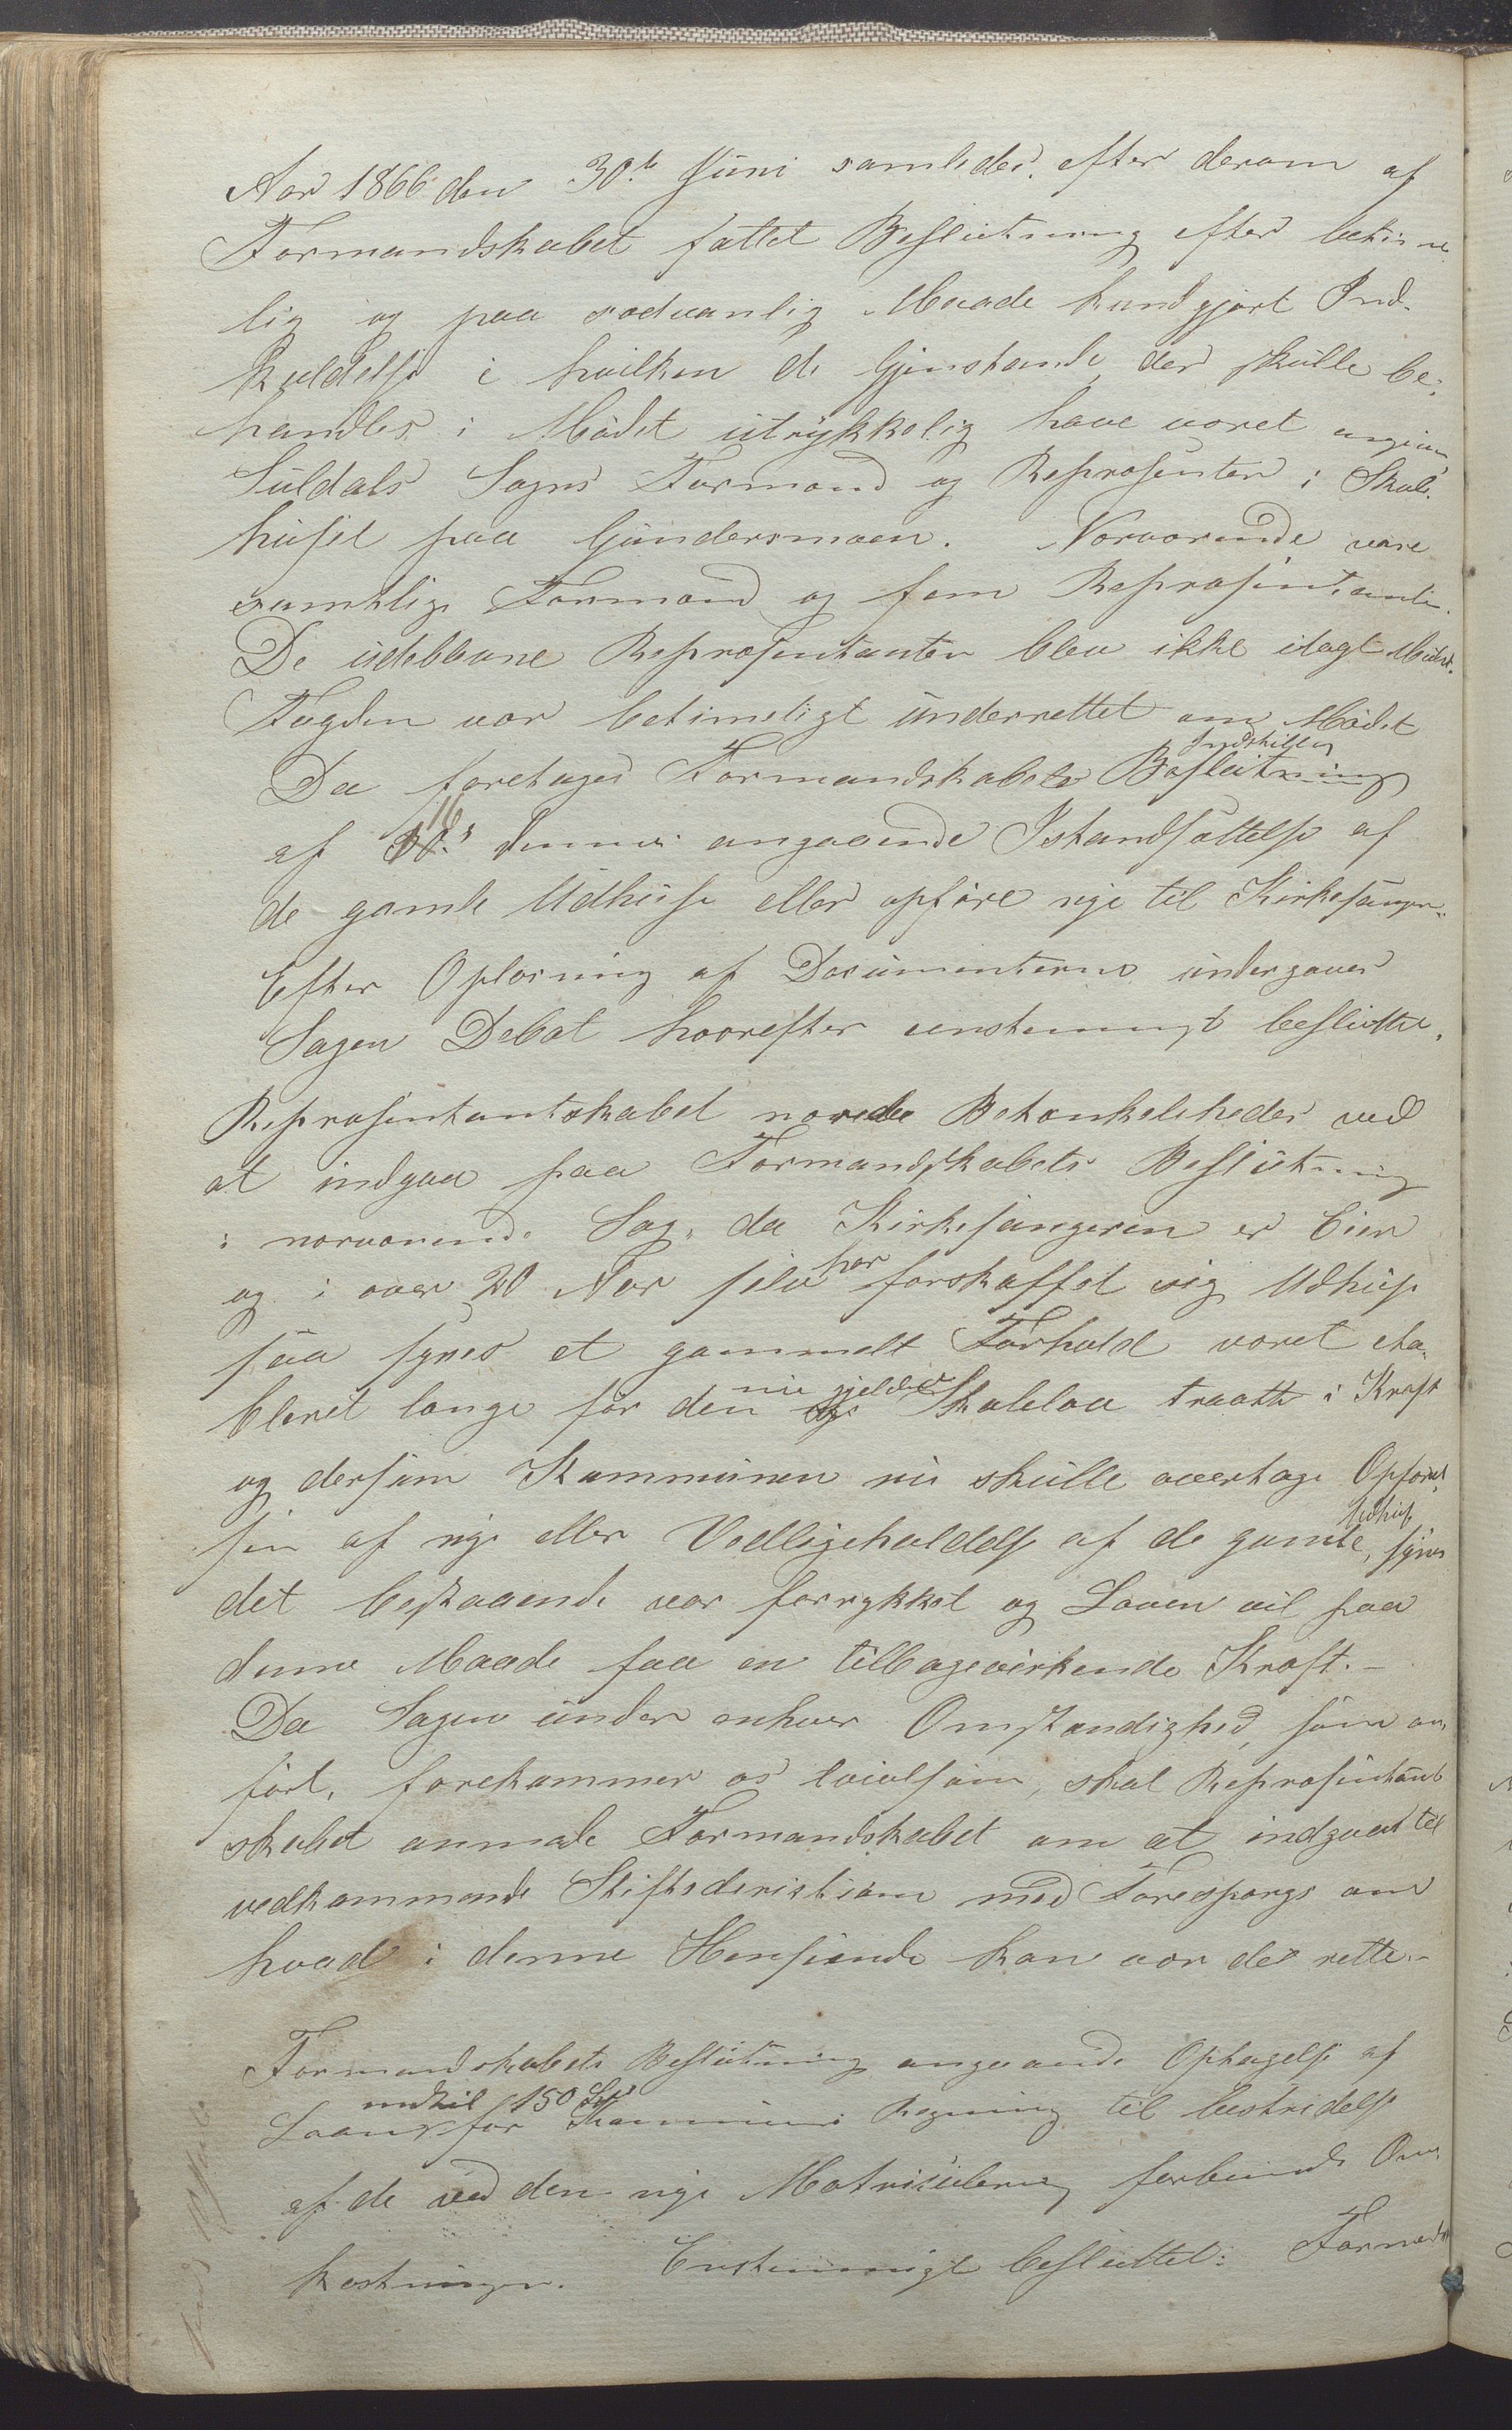 Aar 1866 den 30te Juni samledes efter derom af
Formandskabet fattet Beslutning efter betime
lig og paa sædvanlig Maade kundgjort Ind-
kaldelse i hvilken de Gjenstande der skulle be-
handles i Mødet utrykkelig have været angivn
Suldals Sogns Formænd og Repræsenter i Skole
huset paa Gundersmoen. Nærværende vare
samtlige Formænd og fem Repræsentanter.
De udeblevne Repræsentanter blev ikke ilagt Mulct.
Fogden var betimeligt underrettet om Mødet
Da foretages Formandskabets Beslutning
Indstilling
af 16de dennes angaaende Istandsættelse af
de gamle Udhuse eller opføre nye til Kirkesanger.
Efter Oplæsning af Documenterne undergaves
Sagen Debat hvorefter enstemmigt besluttet.
Repræsentantskabet nærede Betænkeligheder ved
at indgaa paa Formandskabets Beslutning
i nærværende Sag, da Kirkesangeren er Eier
og i over 20 Aar selv har forskaffet sig Udhuse
saa synes et gammelt Forhold været eta-
bleret længe før den nu gjeldende Skolelov traatte i Kraft
og dersom Kommunen nu skulle overtage Opførel
sen af nye eller Vedligeholdelse af de gamle Udhuse, synes
det bestaaende vær forrykket og Loven vil paa
denne Maade faa en tilbagevirkende Kraft.-
Da Sagen under enhver Omstændighed, som an
ført, forekommer os tvivlsom, skal Repræsentant
skabet anmode Formandskabet om at indgaa til
vedkommende Stiftsderiktion med Forespørgs om
hvad i denne Henseende kan vær det rette.-
Formandskabets Beslutning angaaende Optagelse af
Laan indtil 150 Spd for Kommunens Regning til bestridelse
af de ved den nye Matriculering forbundne Om
kostninger. Enstemmigt besluttet: Formands